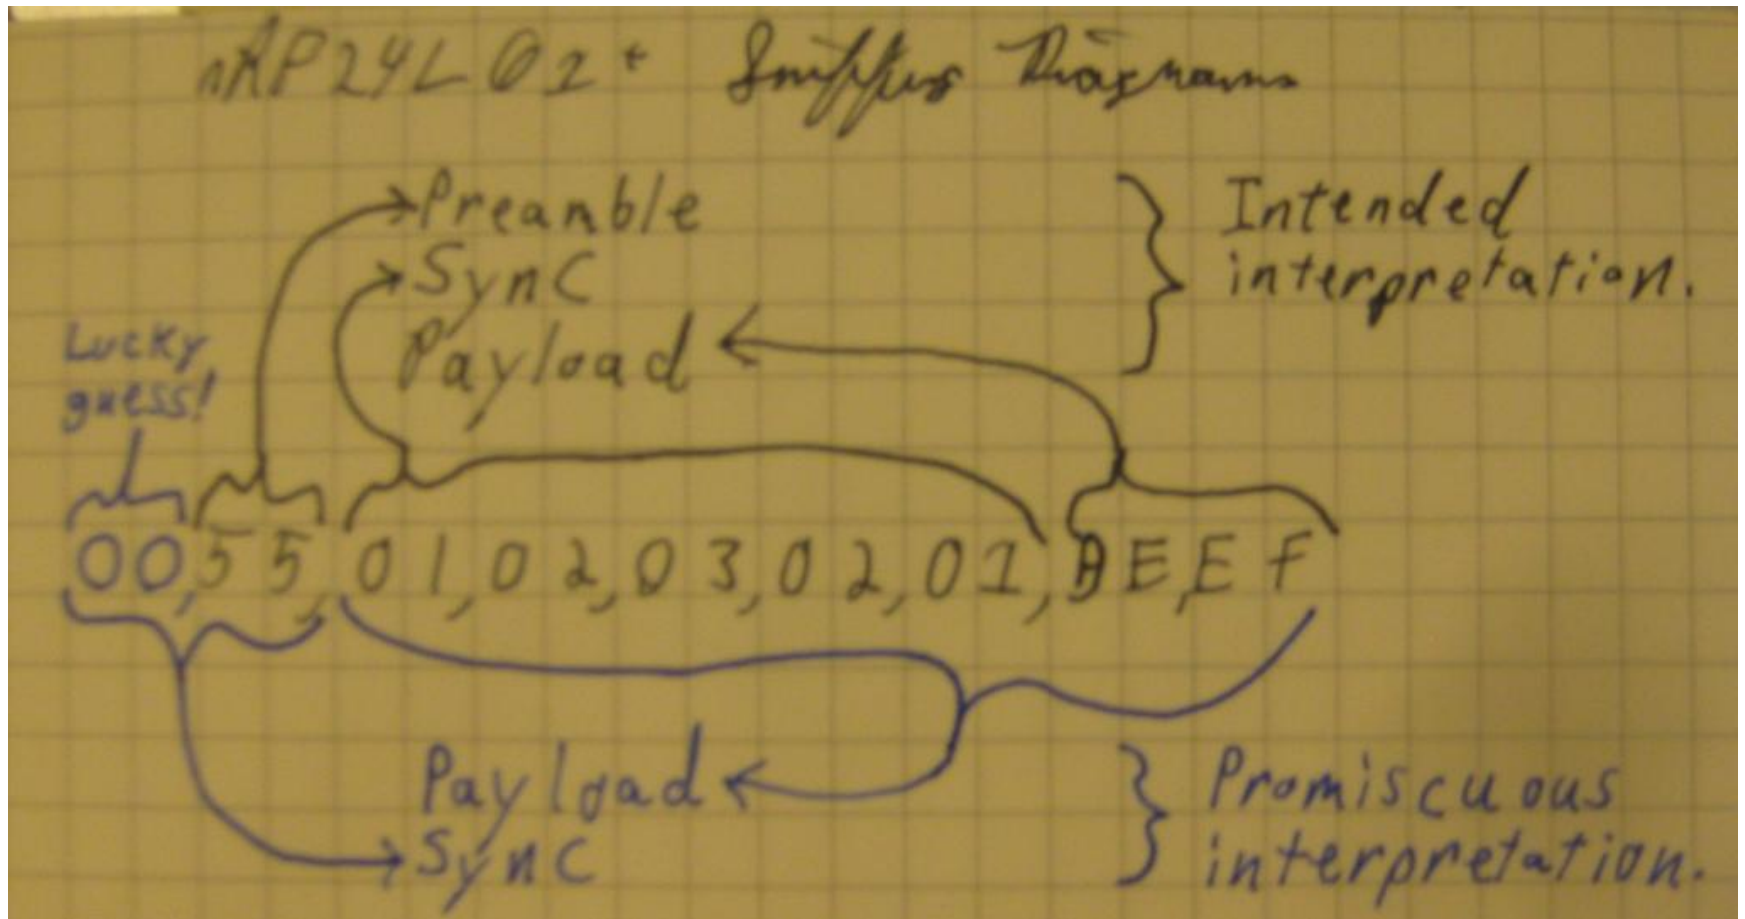 nRF24L01+ Sniffing Diagrams
Preamble
Sync
Payload
Intended
interpretation.
Lucky
guess!
00,55,01,02,03,02,01,BE,EF
Payload
Sync
Promiscuous
interpretation.